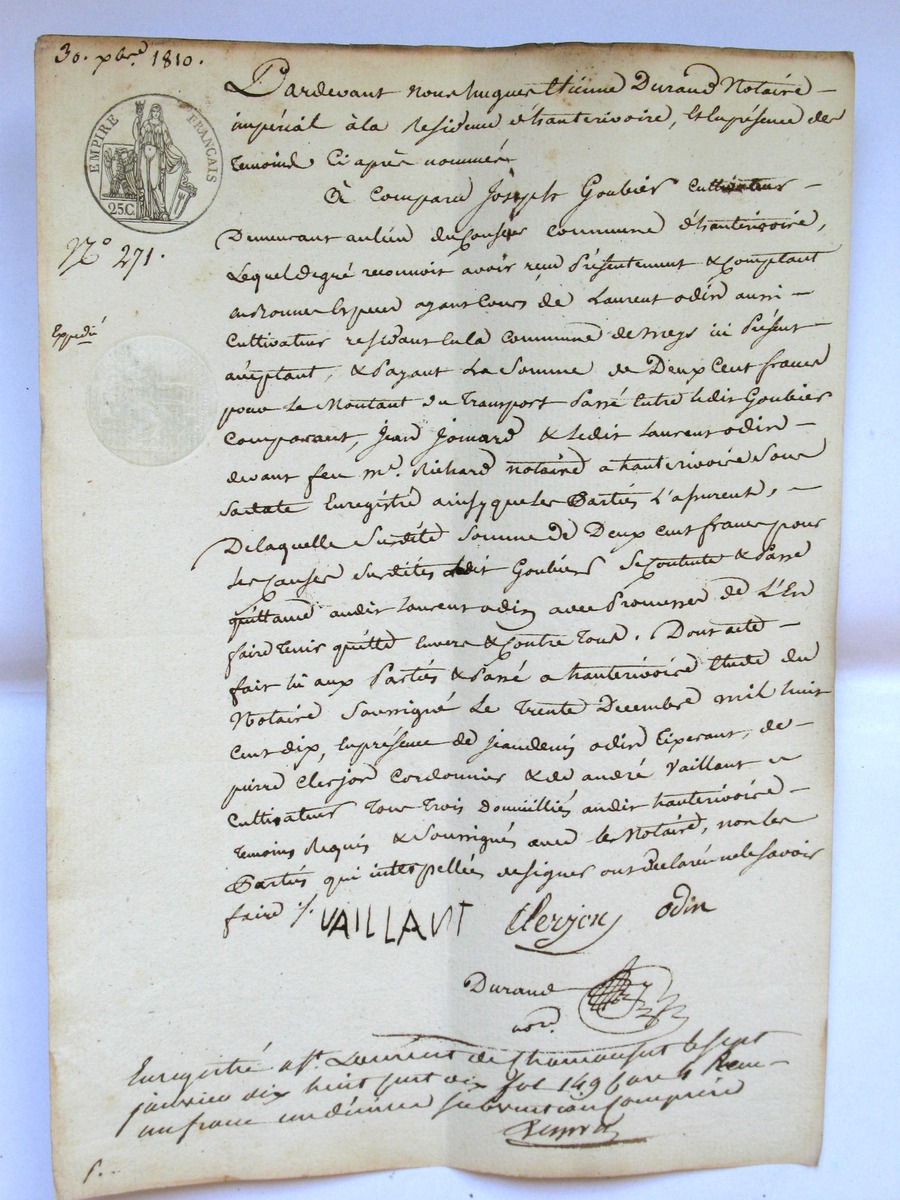 30. xbre 1810.
EMPIRE FRANÇAIS
25C
N° 271.
Expedié
Pardevant nous hugues Etienne Durand Notaire
impérial à la Residence d'hauterivoire, et en présence des
temoins ci après nommés
A Comparu Joseph Goubier Cultivateur
Demeurant au lieu du commune d'hauterivoire,
Lequel de gré reconnoit avoir reçu Présentement & Comptant
en bonnes Especes ayant Cours de Laurent odin aussi
Cultivateur residant en la Commune de meys ici Présent
acceptant, & Payant La Somme de Deux Cent francs
pour Le Montant du Transport Passé Entre ledit Goubier
Comparant, Jean Joinard & Ledit Laurent odin
devant feu me. Richard notaire a hauterivoire Sous
Sa date Enregistré ainsy que les Parties L'assurent,
De laquelle Susdite Somme de Deux cent francs pour
les Causes Susdites ledit Goubier Se Contente & Passe
quittance audit Laurent odin avec Promesse de L'En
faire tenir quitte Envers & Contre Tous. Dont acte
fait lu aux Parties & Passé a hauterivoire Etude du
Notaire Soussigné Le Trente Decembre mil huit
Cent dix, En présence de Jean denis odin tixerant, de
pierre Clerjon Cordonnier & de andré Vaillant
Cultivateur Tous Trois Domicilliés audit hauterivoire
Temoins Requis & Soussignés avec le Notaire, non les
Parties qui interpellées de signer ont Declaré ne le Savoir
faire ./.
VAILLANT Clerjon odin
Durand
nore.
Enregistré a St. Laurent de Chamousset le sept
janvier dix huit cent dix fol 149 Case 4 Reçu
un franc un décime subvention comprise